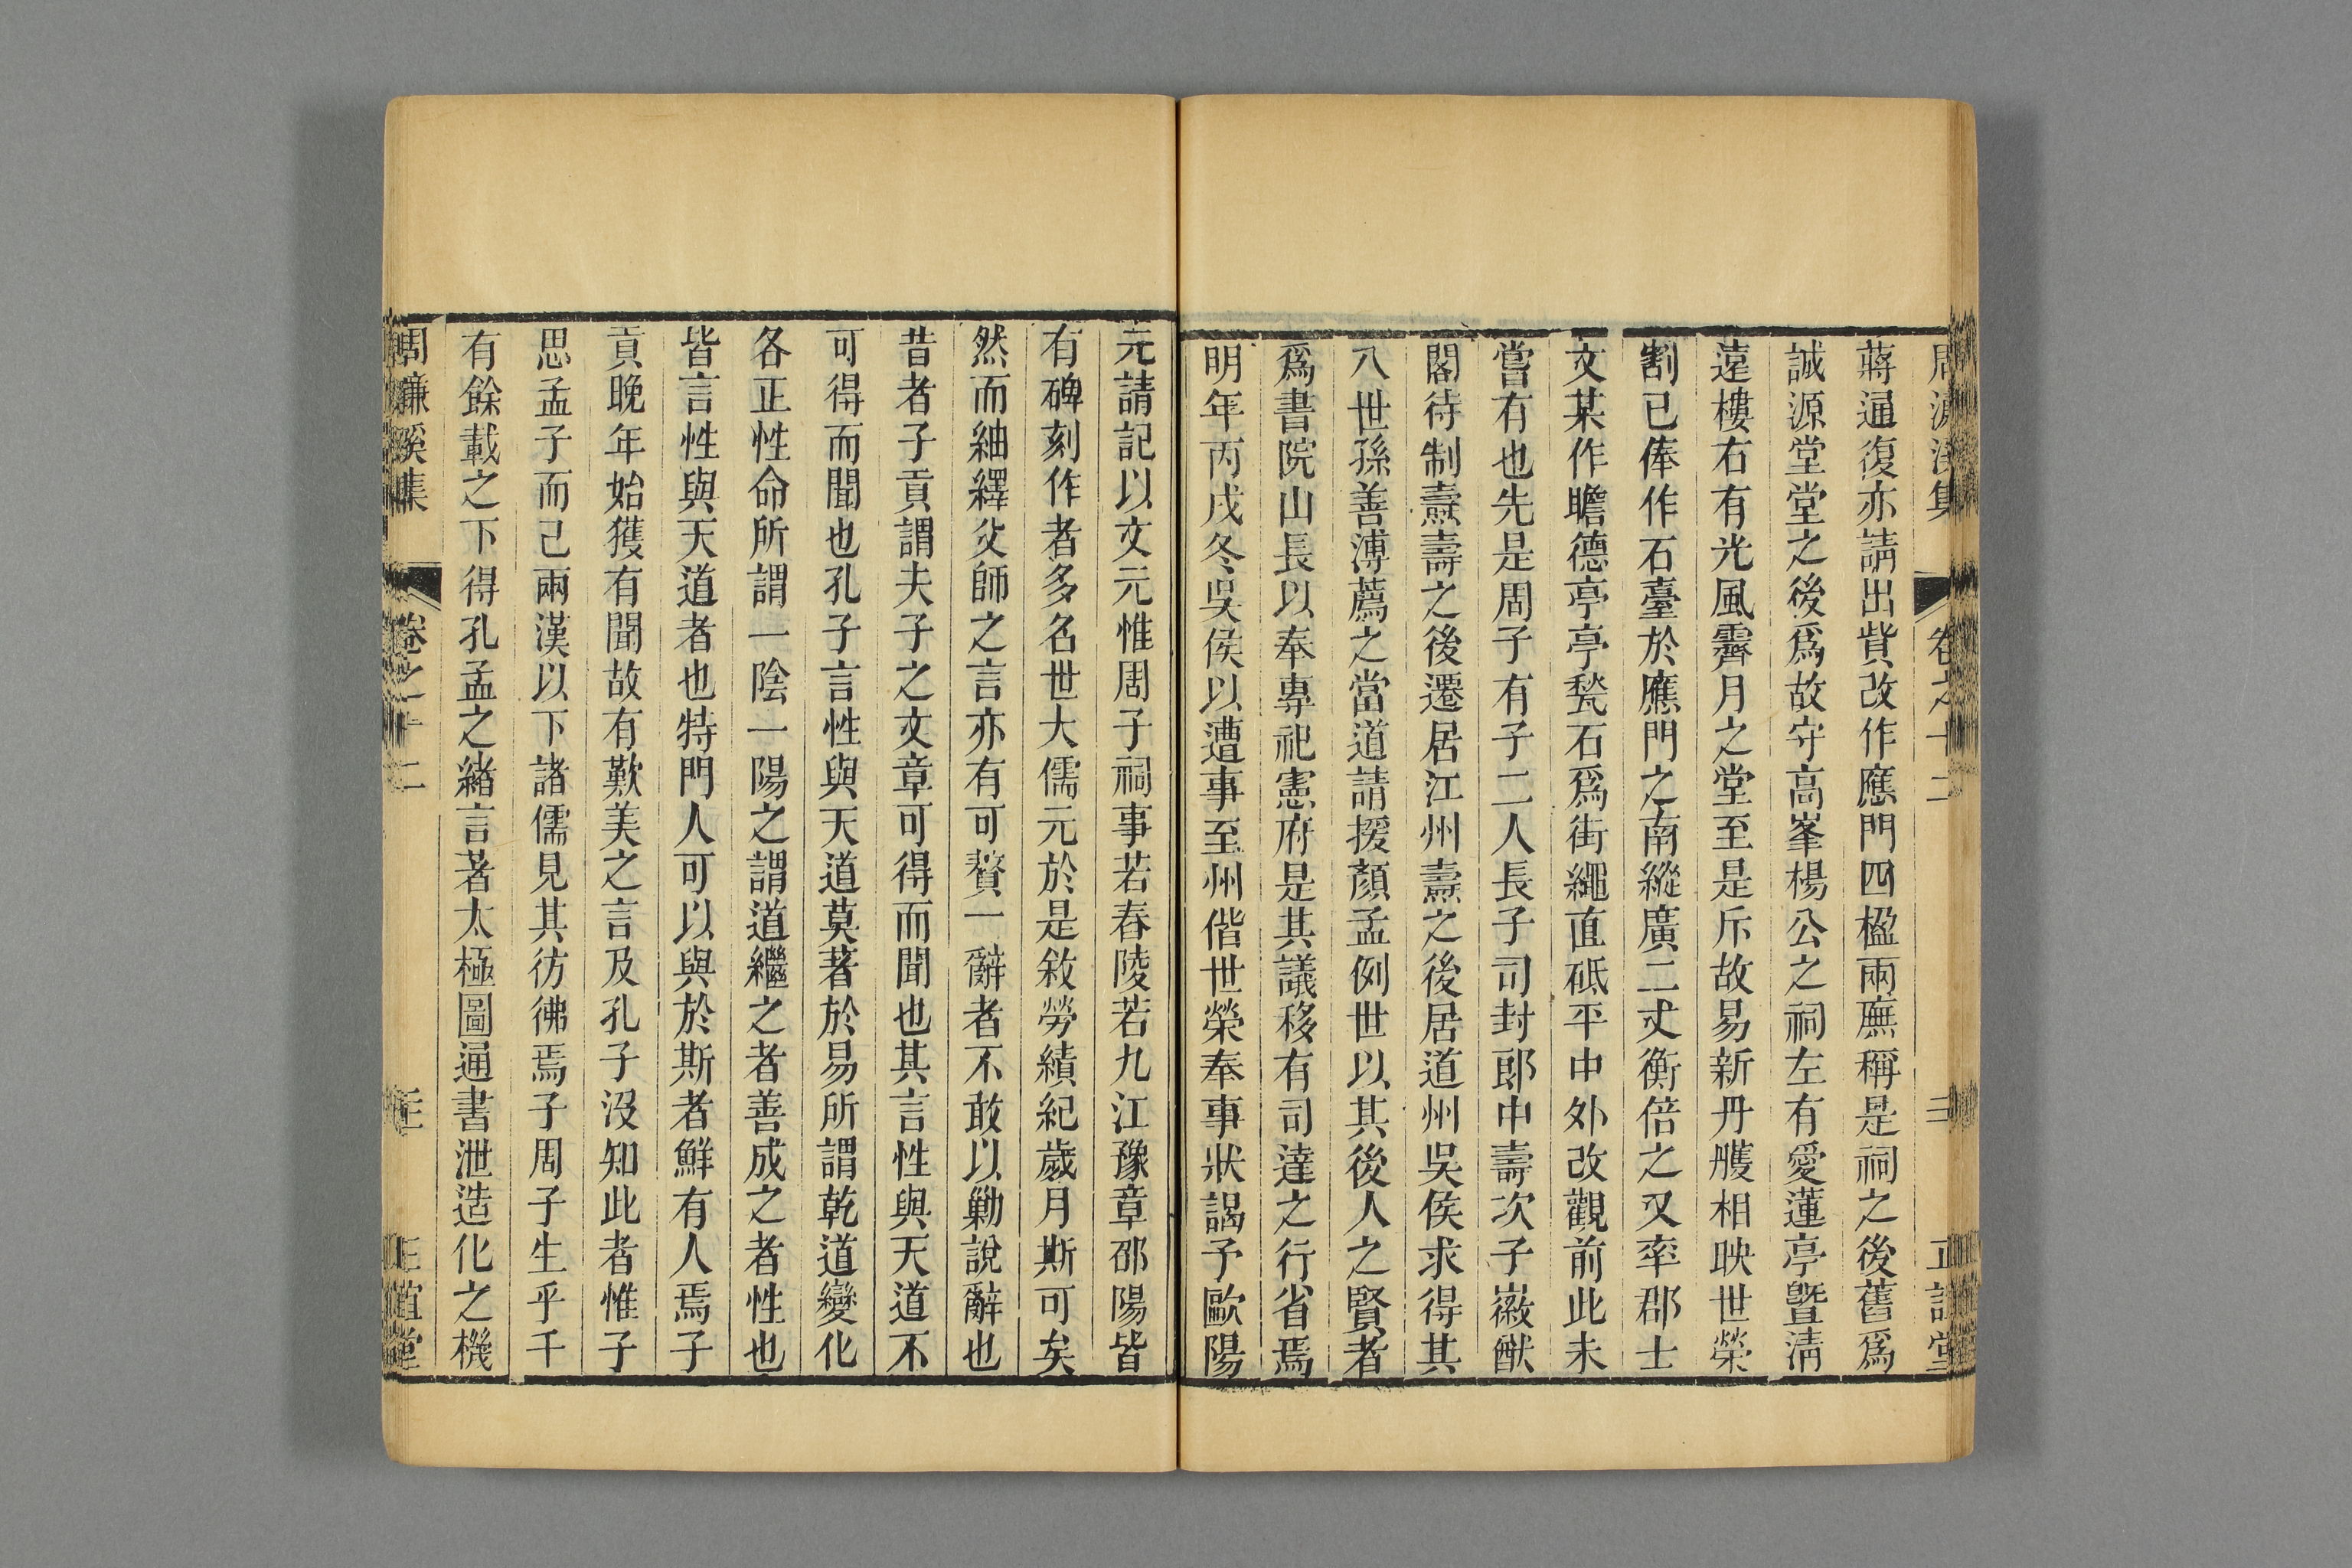 周濂溪集 卷之十二 二 正誼堂
蔣逼復亦請出貲改作應門四楹兩廡稱是祠之後舊爲
誠源堂堂之後爲故守高峯楊公之祠左有愛蓮亭曁淸
遠樓右有光風霽月之堂至是斥故易新丹雘相映世榮
割已俸作石臺於應門之南縱廣二丈衡倍之又率郡士
文某作瞻德亭亭甃石爲街繩直砥平中外改觀前此未
嘗有也先是周子有子二人長子司封郞中壽次子徽猷
閣待制燾壽之後遷居江州燾之後居道州吳侯求得其
八世孫善溥薦之當道請援顏孟例世以其後人之賢者
爲書院山長以奉專祀憲府是其議移有司達之行省焉
明年丙戌冬吳侯以遭事至州偕世榮奉事狀謁予歐陽
元請記以文元惟周子祠事若舂陵若九江豫章邵陽皆
有碑刻作者多名世大儒元於是敘勞績紀歲月斯可矣
然而紬繹父師之言亦有可贅一辭者不敢以勦說辭也
昔者子貢謂夫子之文章可得而聞也其言性與天道不
可得而聞也孔子言性與天道莫著於易所謂乾道變化
各正性命所謂一陰一陽之謂道繼之者善成之者性也
皆言性與天道者也特門人可以與於斯者鮮有人焉子
貢晚年始獲有聞故有歎美之言及孔子沒知此者惟子
思孟子而已兩漢以下諸儒見其彷彿焉子周子生乎千
有餘載之下得孔孟之緒言著太極圖通書泄造化之機
周濂溪集 卷之十二 正誼堂